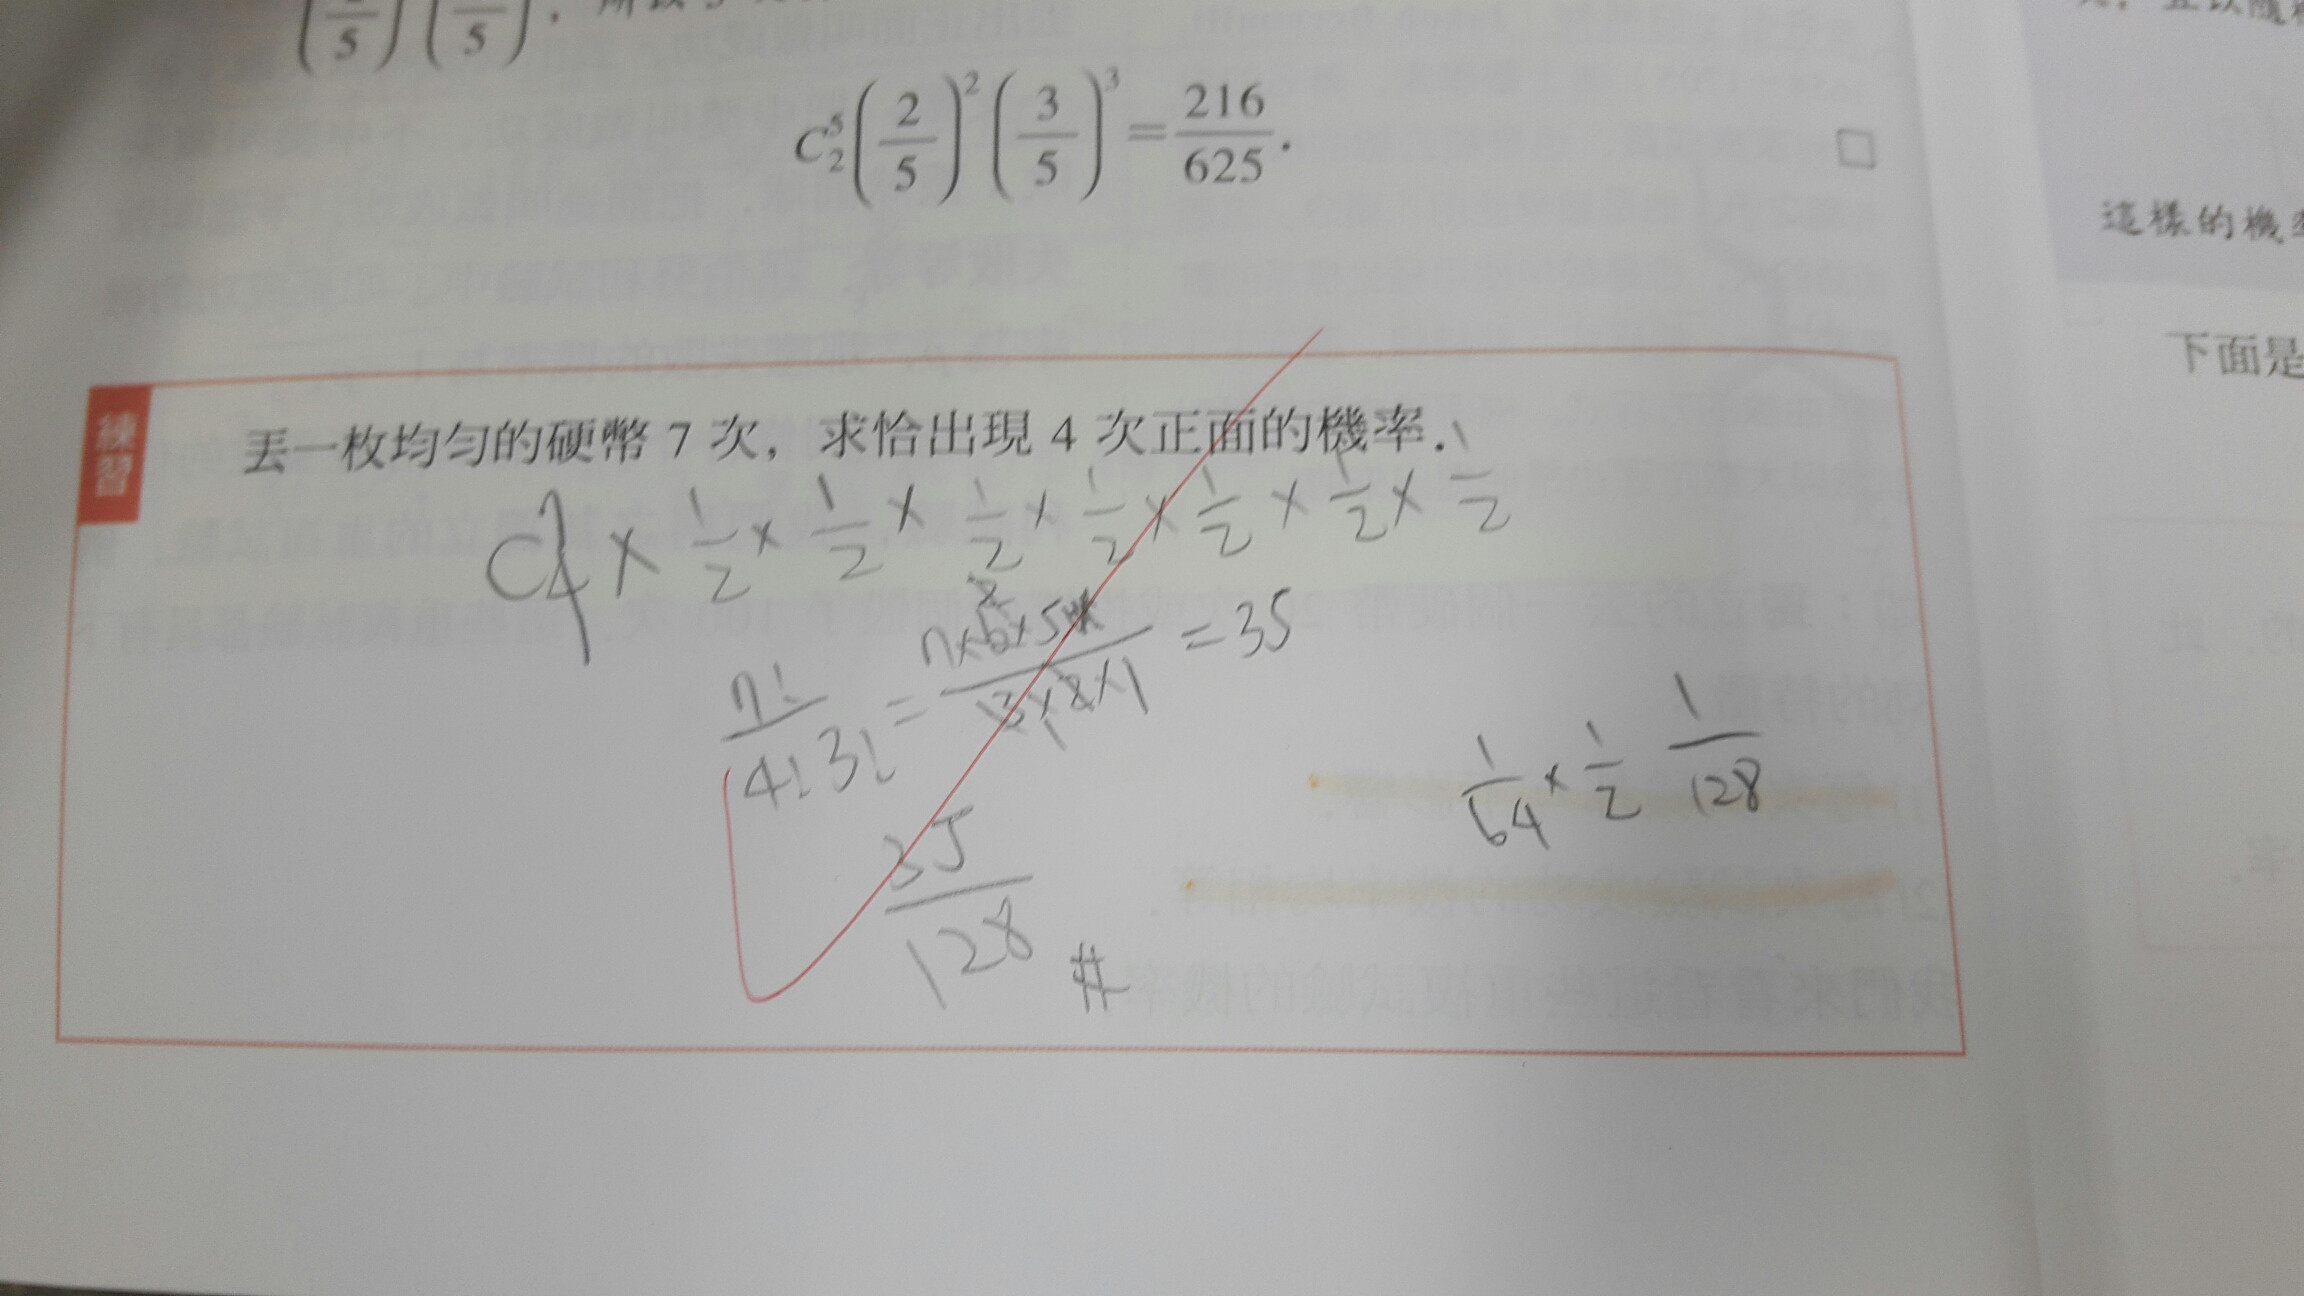 C⁵₂(2/5)²(3/5)³ = 216/625.
□
這樣的機
下面是
練習
丟一枚均勻的硬幣 7 次，求恰出現 4 次正面的機率.
C⁷₄ × 1/2 × 1/2 × 1/2 × 1/2 × 1/2 × 1/2 × 1/2
7!/4!3! = 7×6×5/3×2×1 = 35
1/64 × 1/2 1/128
35/128 #